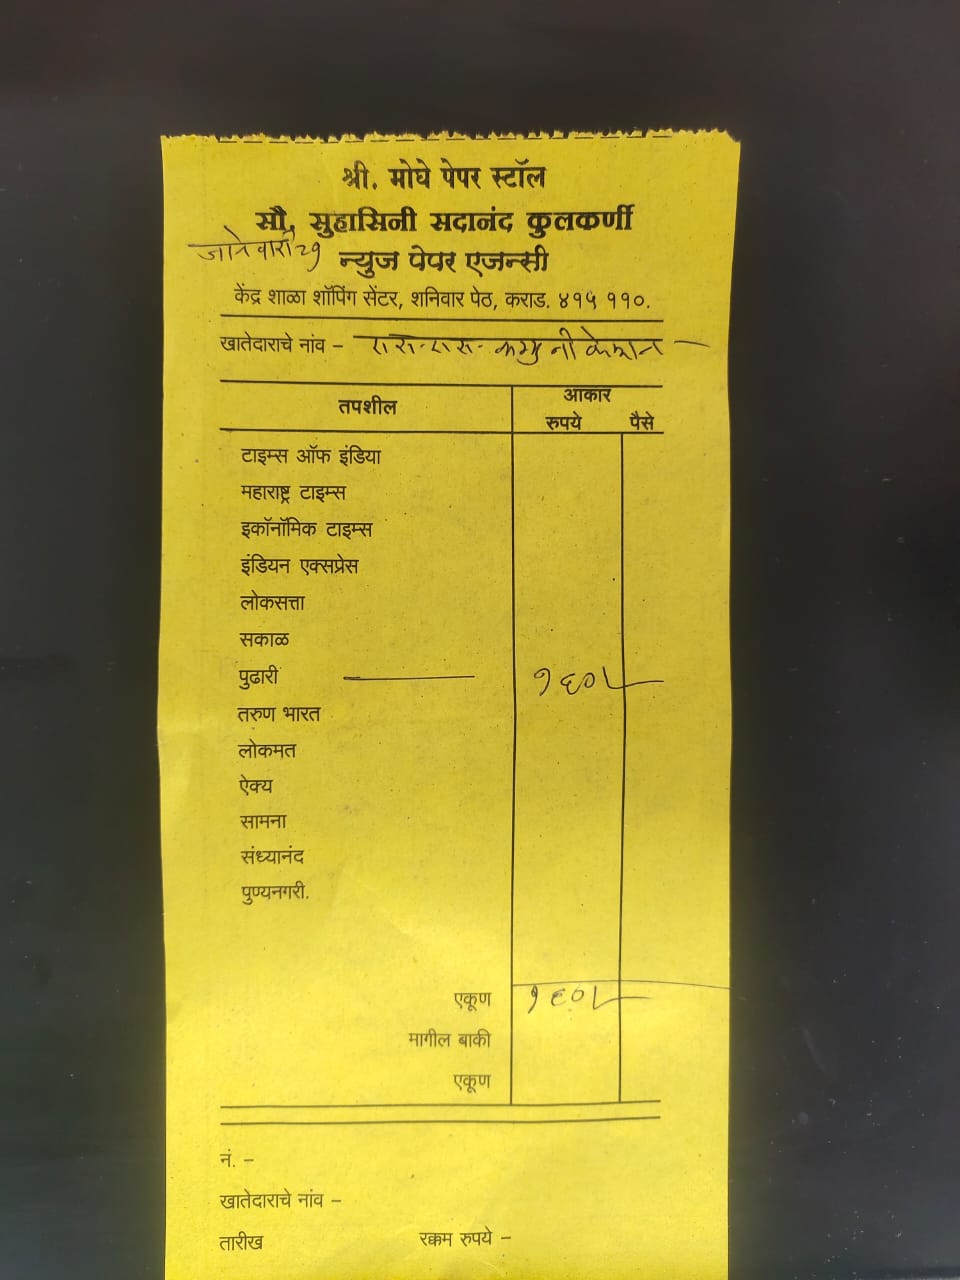 श्री. मोघे पेपर स्टॉल
सौ. सुहासिनी सदानंद कुलकर्णी
जानेवारी २१
न्युज पेपर एजन्सी
केंद्र शाळा शॉपिंग सेंटर, शनिवार पेठ, कराड. ४१५ ११०.
खातेदाराचे नांव – एस. एस. कम्युनीकेशन
तपशील आकार
रुपये पैसे
टाइम्स ऑफ इंडिया
महाराष्ट्र टाइम्स
इकॉनॉमिक टाइम्स
इंडियन एक्सप्रेस
लोकसत्ता
सकाळ
पुढारी १६०/-
तरुण भारत
लोकमत
ऐक्य
सामना
संध्यानंद
पुण्यनगरी.
एकूण १६०/-
मागील बाकी
एकूण
नं. –
खातेदाराचे नांव –
तारीख रक्कम रुपये –